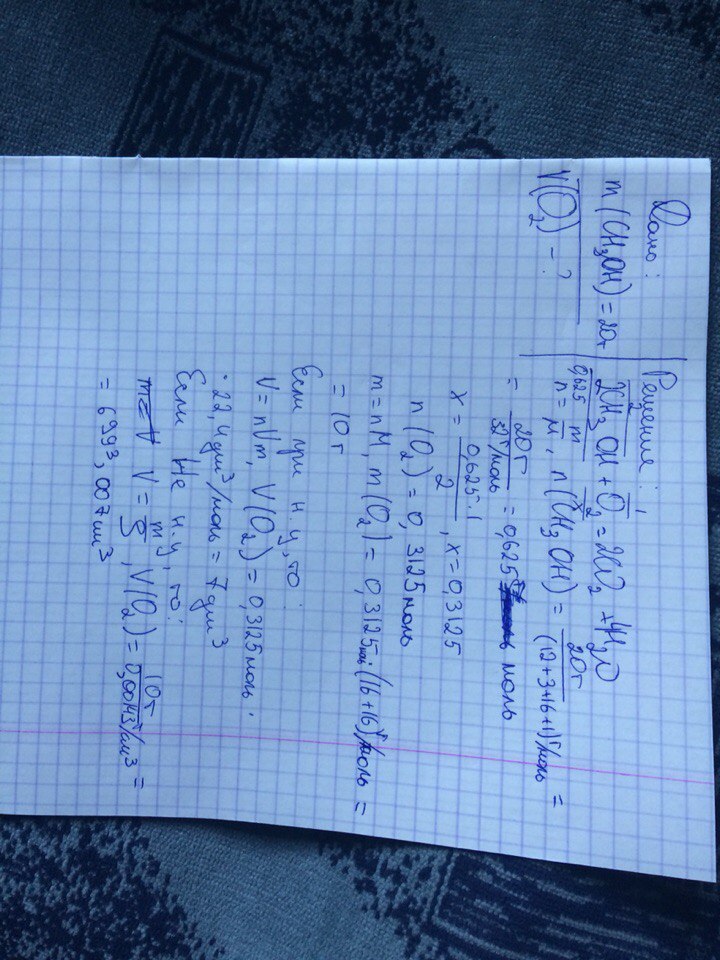 Дано:
m(CH₃OH) = 20г
V(O₂) - ?
Решение:
2CH₃OH + O₂ = 2CO₂ + 4H₂O
0,625
x
1
2
n = m/M, n(CH₃OH) = 20г/(12+3+16+1)г/моль =
= 20г/32г/моль = 0,625 моль
x = 0,625·1/2, x = 0,3125
n(O₂) = 0,3125 моль
m = nM, m(O₂) = 0,3125моль·(16+16)г/моль =
= 10г
Если при н.у, то:
V = nVm, V(O₂) = 0,3125 моль ·
· 22,4 дм³/моль = 7 дм³
Если не н.у, то:
V = m/ρ, V(O₂) = 10г/0,00143г/см³ =
= 6993,007 см³